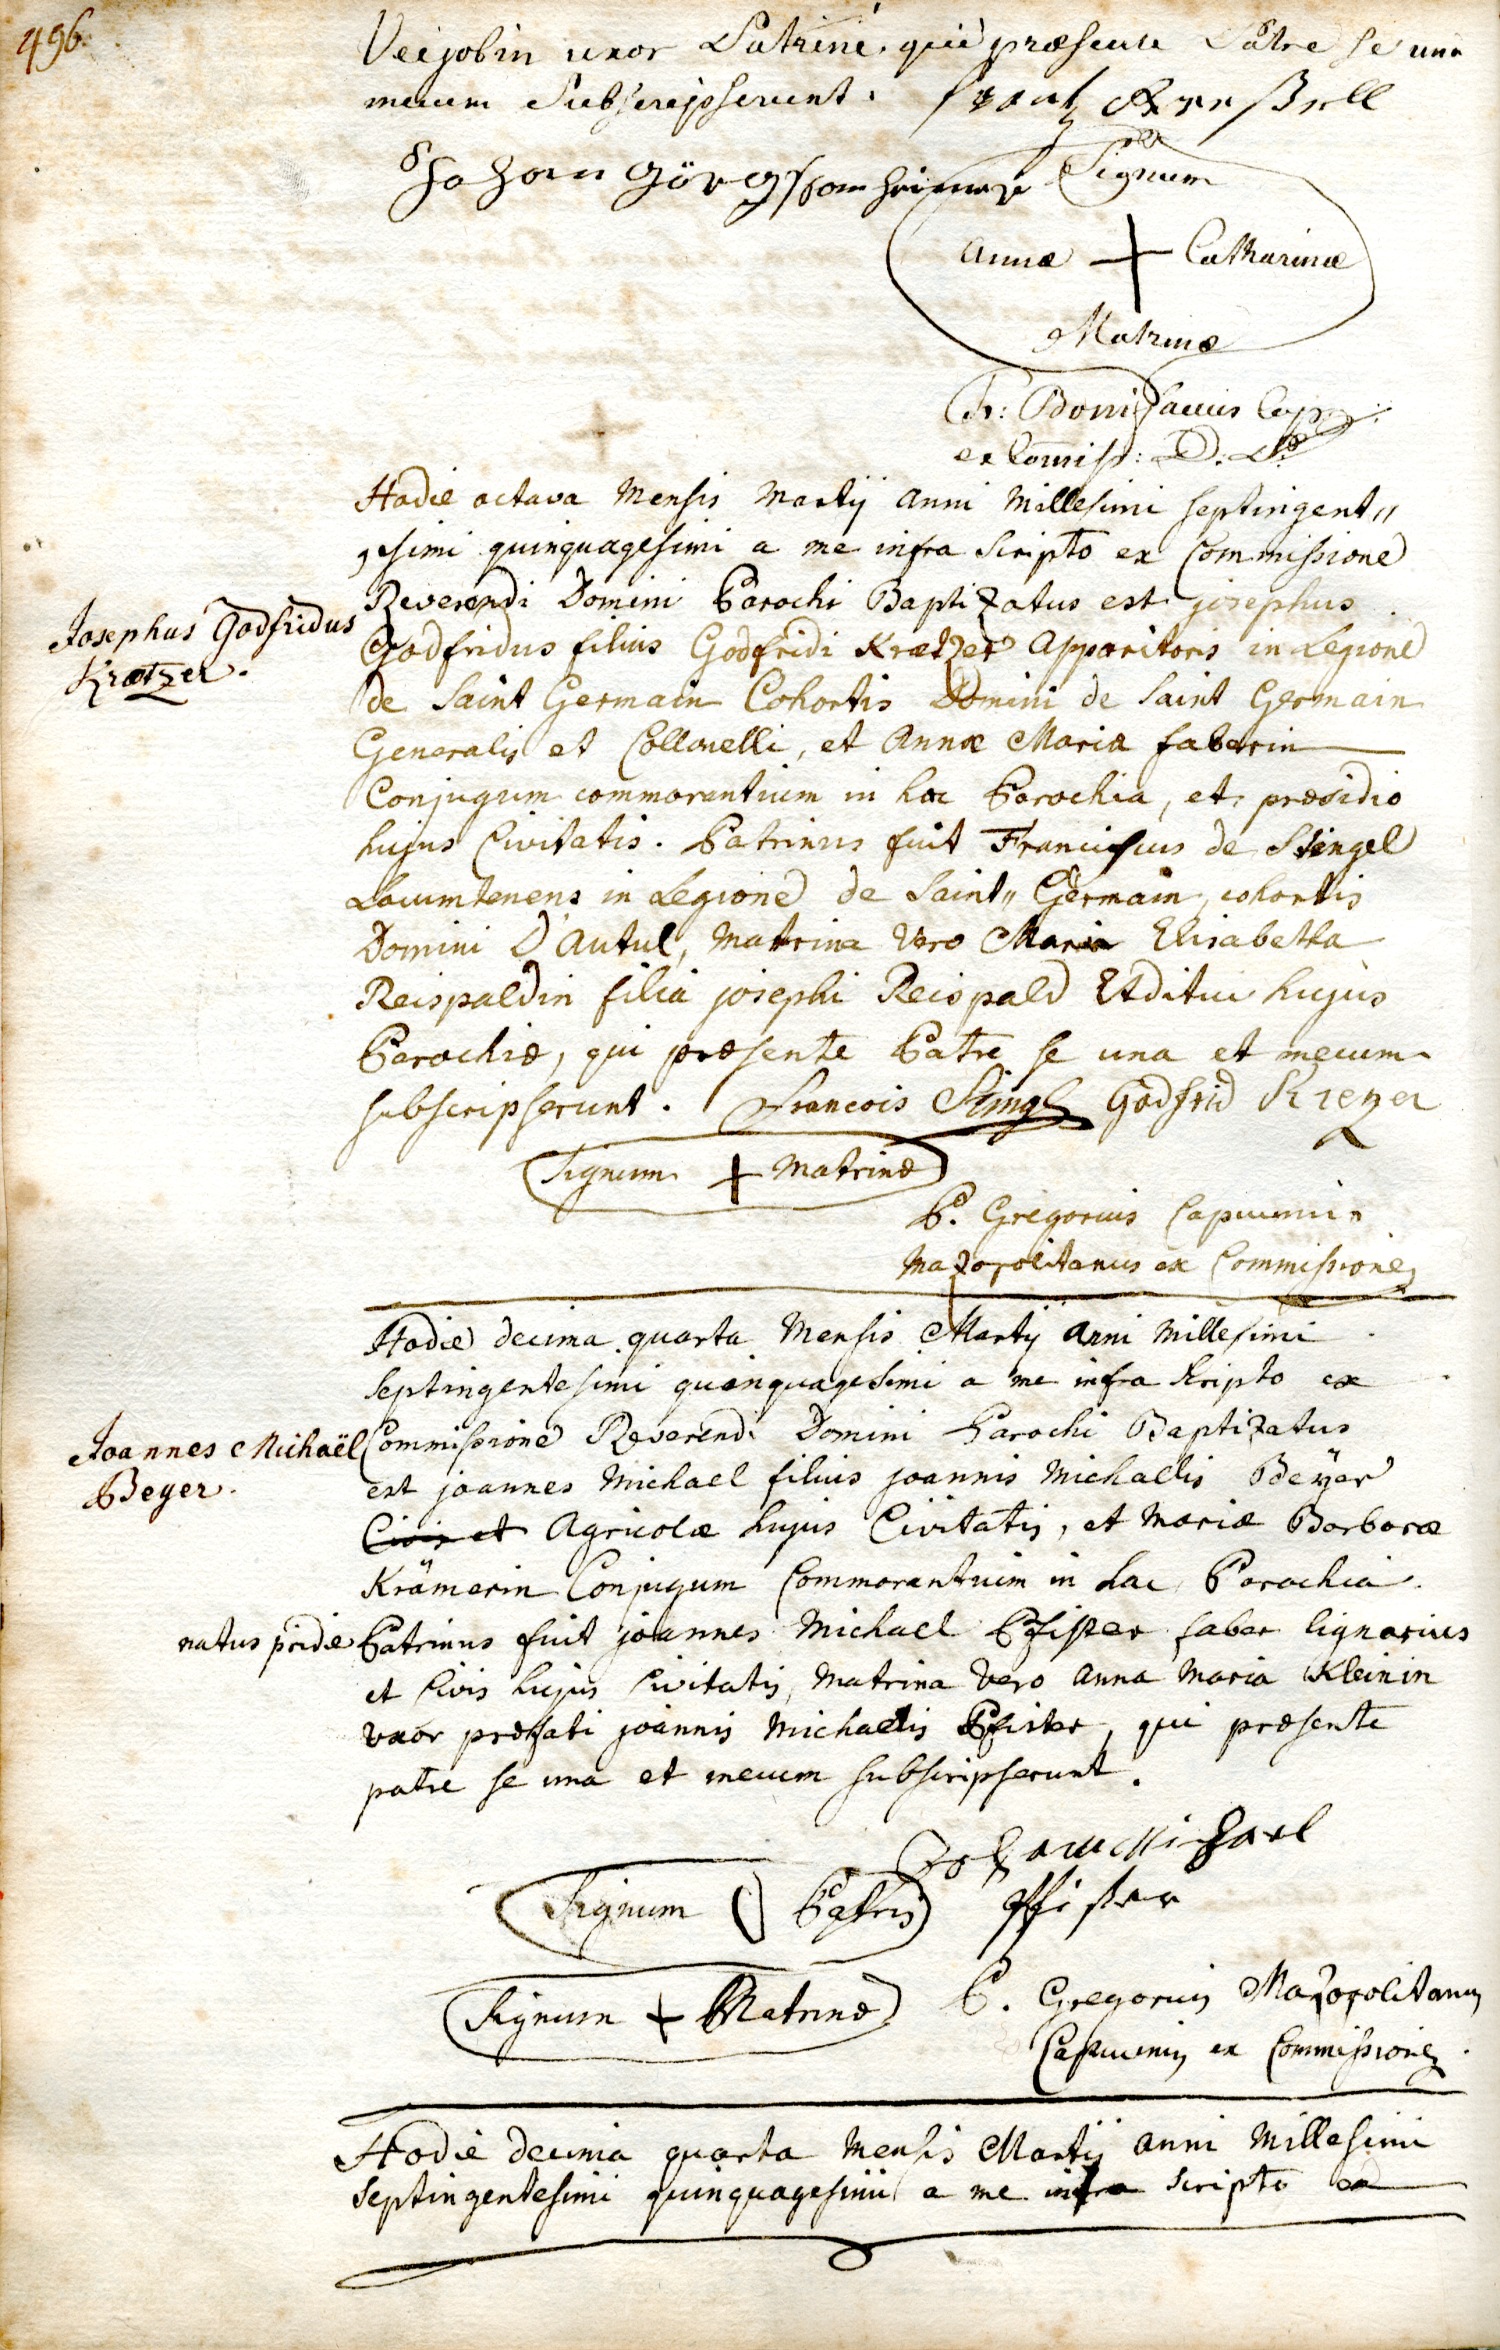 496.
Veejobin uxor Patrini, qui præsente Patre se una
mecum Subscripserunt.
Johan Görg
Signum
Annæ + Catharinæ
Matrinæ
Fr: Bonifacius Cap:
ex Comiss: D. P.
Hodie octava Mensis Martij Anni Millesimi septingent„
„esimi quinquagesimi a me infra scripto ex Commissione
Reverendi Domini Parochi Baptizatus est josephus
Josephus Godfridus
Krætzer.
Godfridus filius Godfridi Krætzer Apparitoris in Legione
de Saint Germain Cohortis Domini de Saint Germain
Generalis et Collonelli, et Annæ Mariæ faberin
Conjugum commorantium in hac Parochia, et præsidio
hujus Civitatis. Patrinus fuit Franciscus de Stengel
Locumtenens in Legione de Saint„ Germain, cohortis
Domini D'Autul, Matrina Vero Maria Elisabetha
Reispaldin filia josephi Reispald Æditui hujus
Parochiæ, qui præsente Patre se una et mecum
subscripserunt. francois Stingl Godfrid Krezer
Signum + Matrinæ
P. Gregorius Capucinus
Mazopolitanus ex Commissione
Hodie decima quarta Mensis Martij Anni Millesimi
septingentesimi quinquagesimi a me infra scripto ex
Joannes Michaël
Beyer.
Commissione Reverendi Domini Parochi Baptizatus
est joannes Michael filius joannis Michaelis Beÿer
Civis et Agricolæ hujus Civitatis, et Mariæ Barbaræ
Krämerin Conjugum Commorantium in hac Parochia.
natus pridie
Patrinus fuit joannes Michael Pfister faber lignarius
et Civis hujus Civitatis, Matrina Vero Anna Maria Kleinin
Uxor præfati joannis Michaelis Pfister, qui præsente
patre se una et mecum subscripserunt.
Johann Michael
Pfister
Signum () Patris
Signum + Matrinæ
P. Gregorius Mazopolitanus
Capucinus ex Commissione
Hodie decima quarta Mensis Martij Anni Millesimi
septingentesimi quinquagesimi a me infra scripto ex